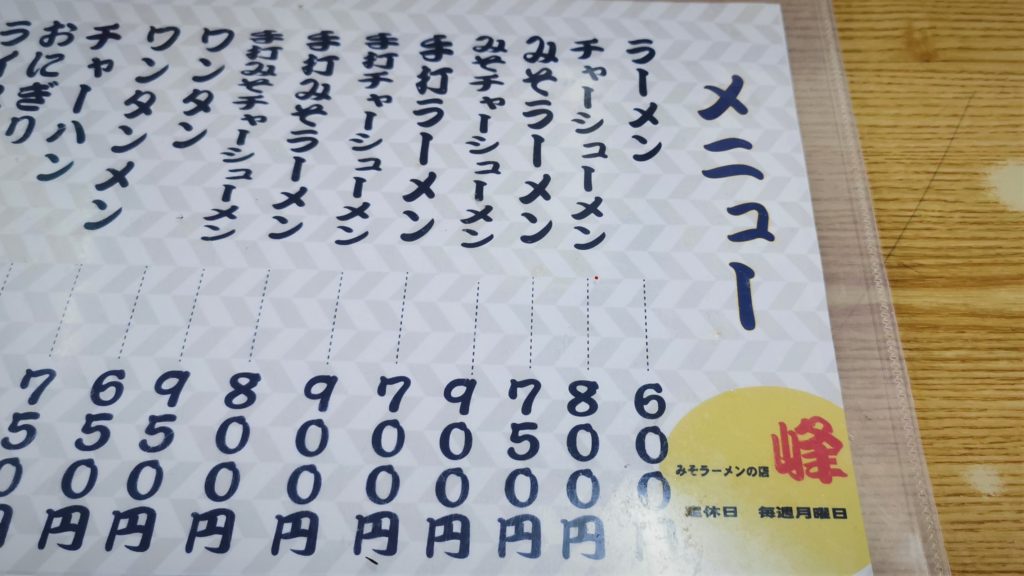 メニュー
ラーメン 600円
チャーシューメン 800円
みそラーメン 750円
みそチャーシューメン 900円
手打ラーメン 700円
手打チャーシューメン 900円
手打みそラーメン 800円
手打みそチャーシューメン 950円
ワンタン 650円
ワンタンメン 750円
チャーハン
おにぎり
みそラーメンの店 峰
定休日 毎週月曜日